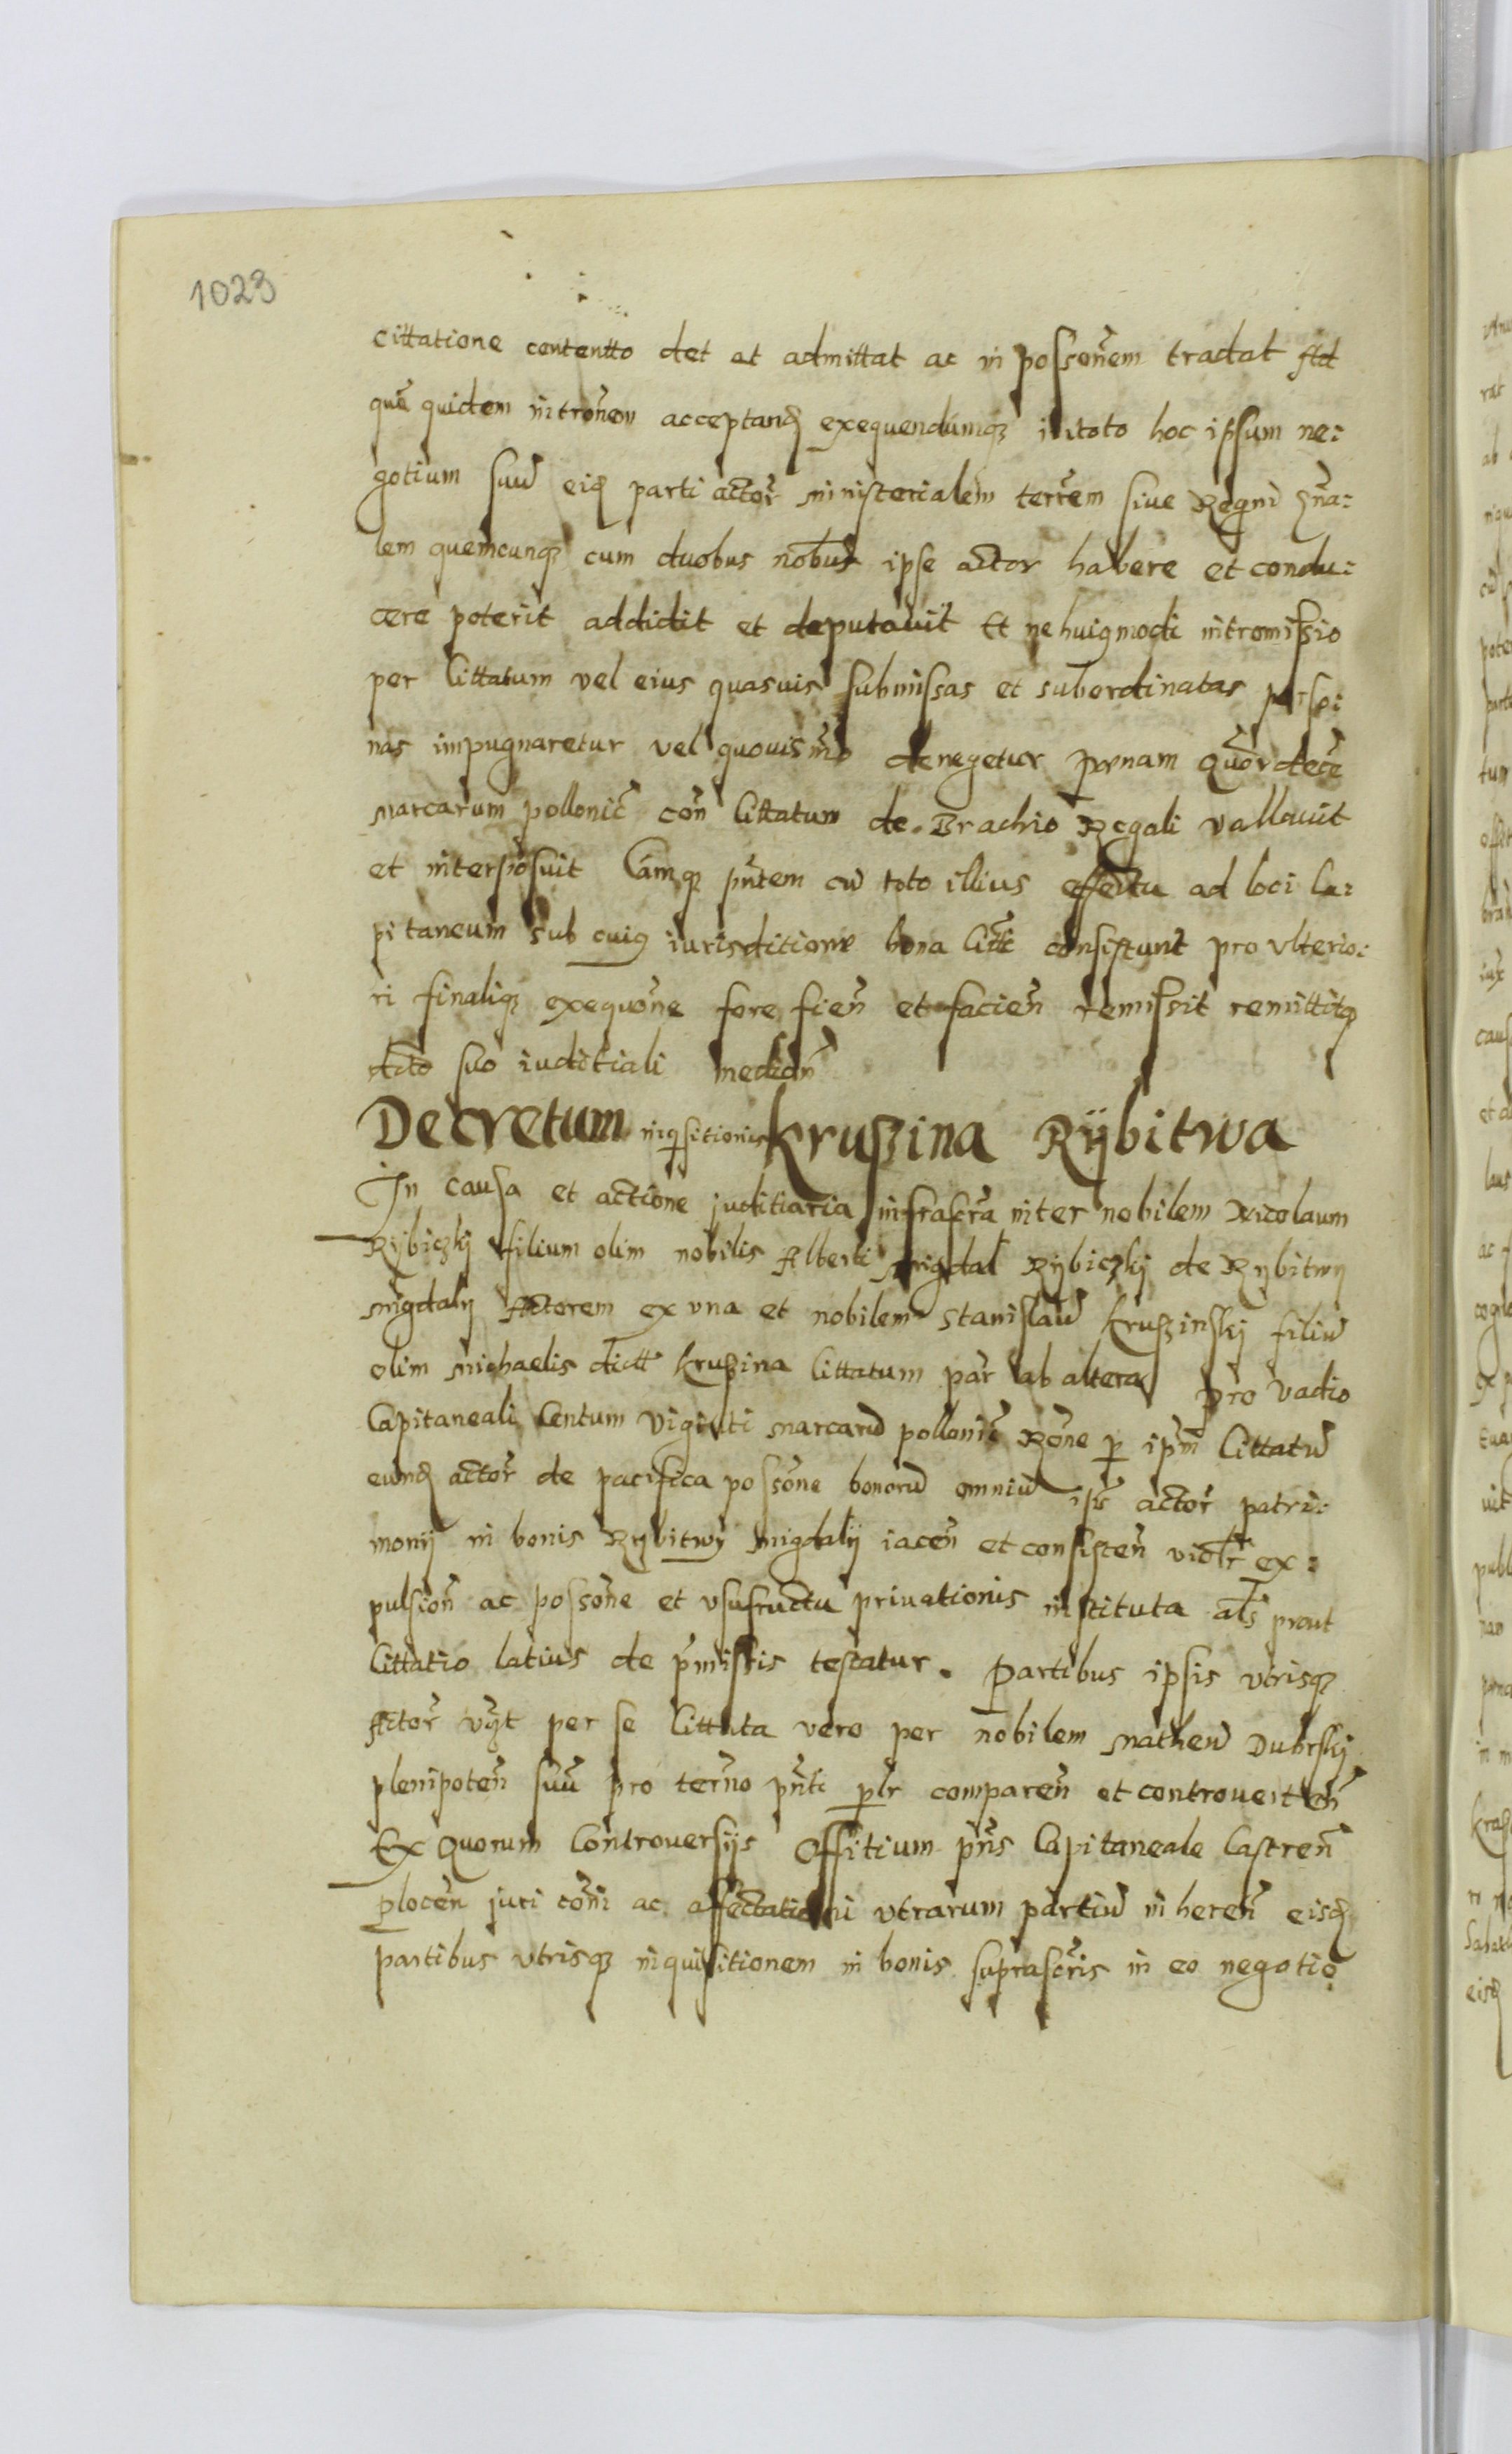 1023
cittatione contentto det at admittat ac in possonem tradat Ad
quā quidem intronem acceptand exequendumq3 in toto hoc ipsum ne:
gotium suū eid parti actor ministerialem terrem siue Regni gna:
lem quemcunq3 cum duobus nobus ipse actor habere et condu:
cere poterit addidit et deputauit Et ne huigmodi intromissio
per Cittatum vel eius quasuis submissas et subordinatas perso:
nas impugnaretur vel quouismo denegetur poenam quordece
marcarum pollonic con Cittatum de Brachio Regali vallauit
et interposuit Camq3 pntem cū toto illius effectu ad loci Ca:
pitaneum sub cuig iurisditione bona Citti consistunt pro vlterio:
ri finaliq3 exequone fore fien et facien remissit remittitq3
dcto suo iuditiali median
Decretum inqsitionis Kruszina Rÿbitwa
In causa et actione juditiaria infrascra inter nobilem Nicolaum
Rÿbiczkÿ filium olim nobilis Alberti Migdal Rÿbiczkÿ de Rybitwy
Migdaly Actorem ex vna et nobilem Stanislaū Kruszinskÿ filiū
olim Michaelis dictt Kruszina Cittatum par ab altera Pro vadio
Capitaneali Centum Viginti marcarū pollonic Rone p ipm Cittatū
eumd actor de pacifica possone bonorū omniū ipis actor patri:
monÿ in bonis Rybitwy Migdalÿ iacen et consisten violtr ex:
pulsion ac possone et vsufructu priuationis instituta als prout
Cittatio latius de pmissis testatur. Partibus ipsis vtrisq3
Actor vzt per se Cittata vero per nobilem Matheū Dubrskÿ
plenipoten suū pro terno pnti plr comparen et controuerten
Ex Quorum Controuersÿs Offitium pns Capitaneale Castren
Plocen juri coni ac affectationi vtrarum partiū inheren eisd
partibus vtrisq3 inquisitionem in bonis suprascris in eo negotio